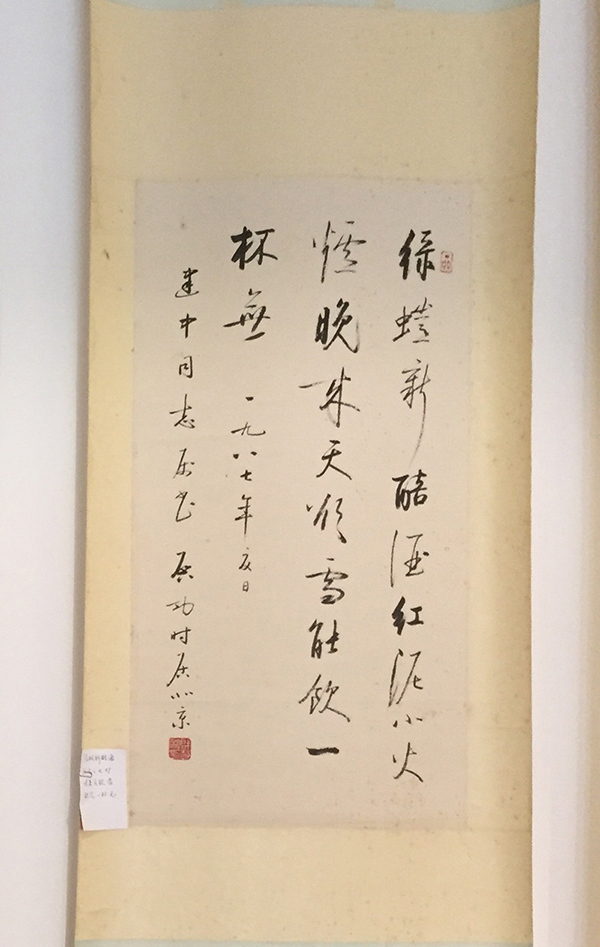 綠螘新醅酒紅泥小火
爐晚来天欲雪能飲一
杯無 一九八七年夏日
建中同志属书 启功时居北京